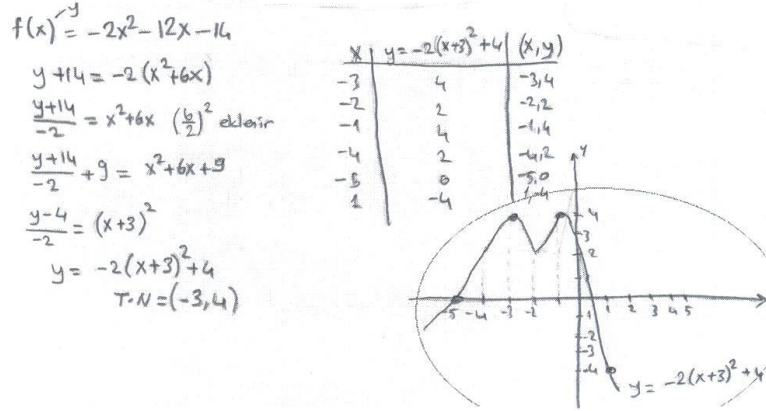 f(x) = y = -2x² - 12x - 14
y+14 = -2(x²+6x)
y+14/-2 = x²+6x (6/2)² eklenir
y+14/-2 + 9 = x²+6x+9
y-4/-2 = (x+3)²
y = -2(x+3)²+4
T.N=(-3,4)
x y=-2(x+3)²+4 (x,y)
-3 4 -3,4
-2 2 -2,2
-1 4 -1,4
-4 2 -4,2
-5 0 -5,0
1 -4 1,-4
y
4
3
2
-5 -4 -3 -2 1 2 3 4 5
-1
-2
-3
-4
y = -2(x+3)²+4